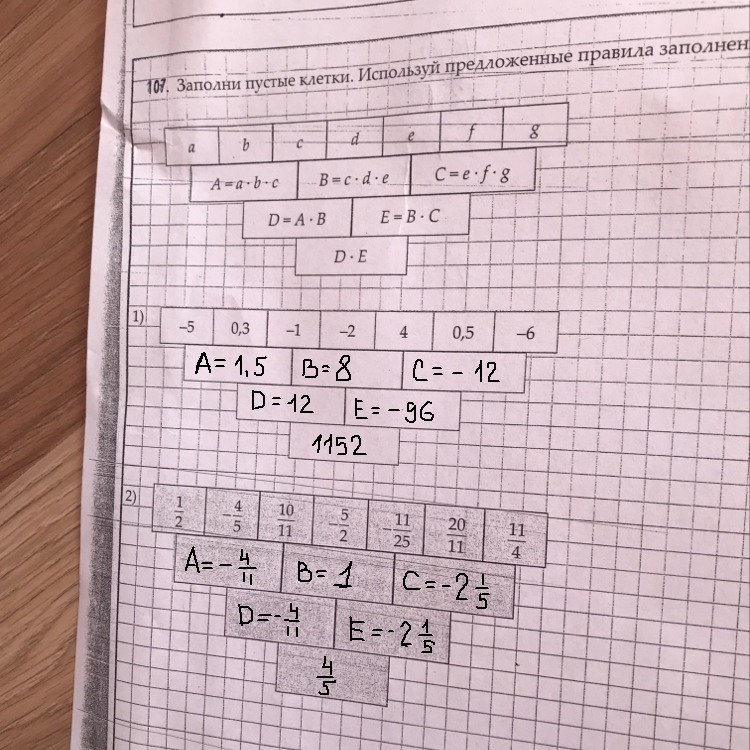 107. Заполни пустые клетки. Используй предложенные правила заполнен
a b c d e f g
A = a · b · c B = c · d · e C = e · f · g
D = A · B E = B · C
D · E
1)
–5 0,3 –1 –2 4 0,5 –6
A = 1,5 B = 8 C = - 12
D = 12 E = -96
1152
2)
1/2 -4/5 10/11 -5/2 -11/25 20/11 11/4
A = - 4/11 B = 1 C = -2 1/5
D = - 4/11 E = -2 1/5
4/5